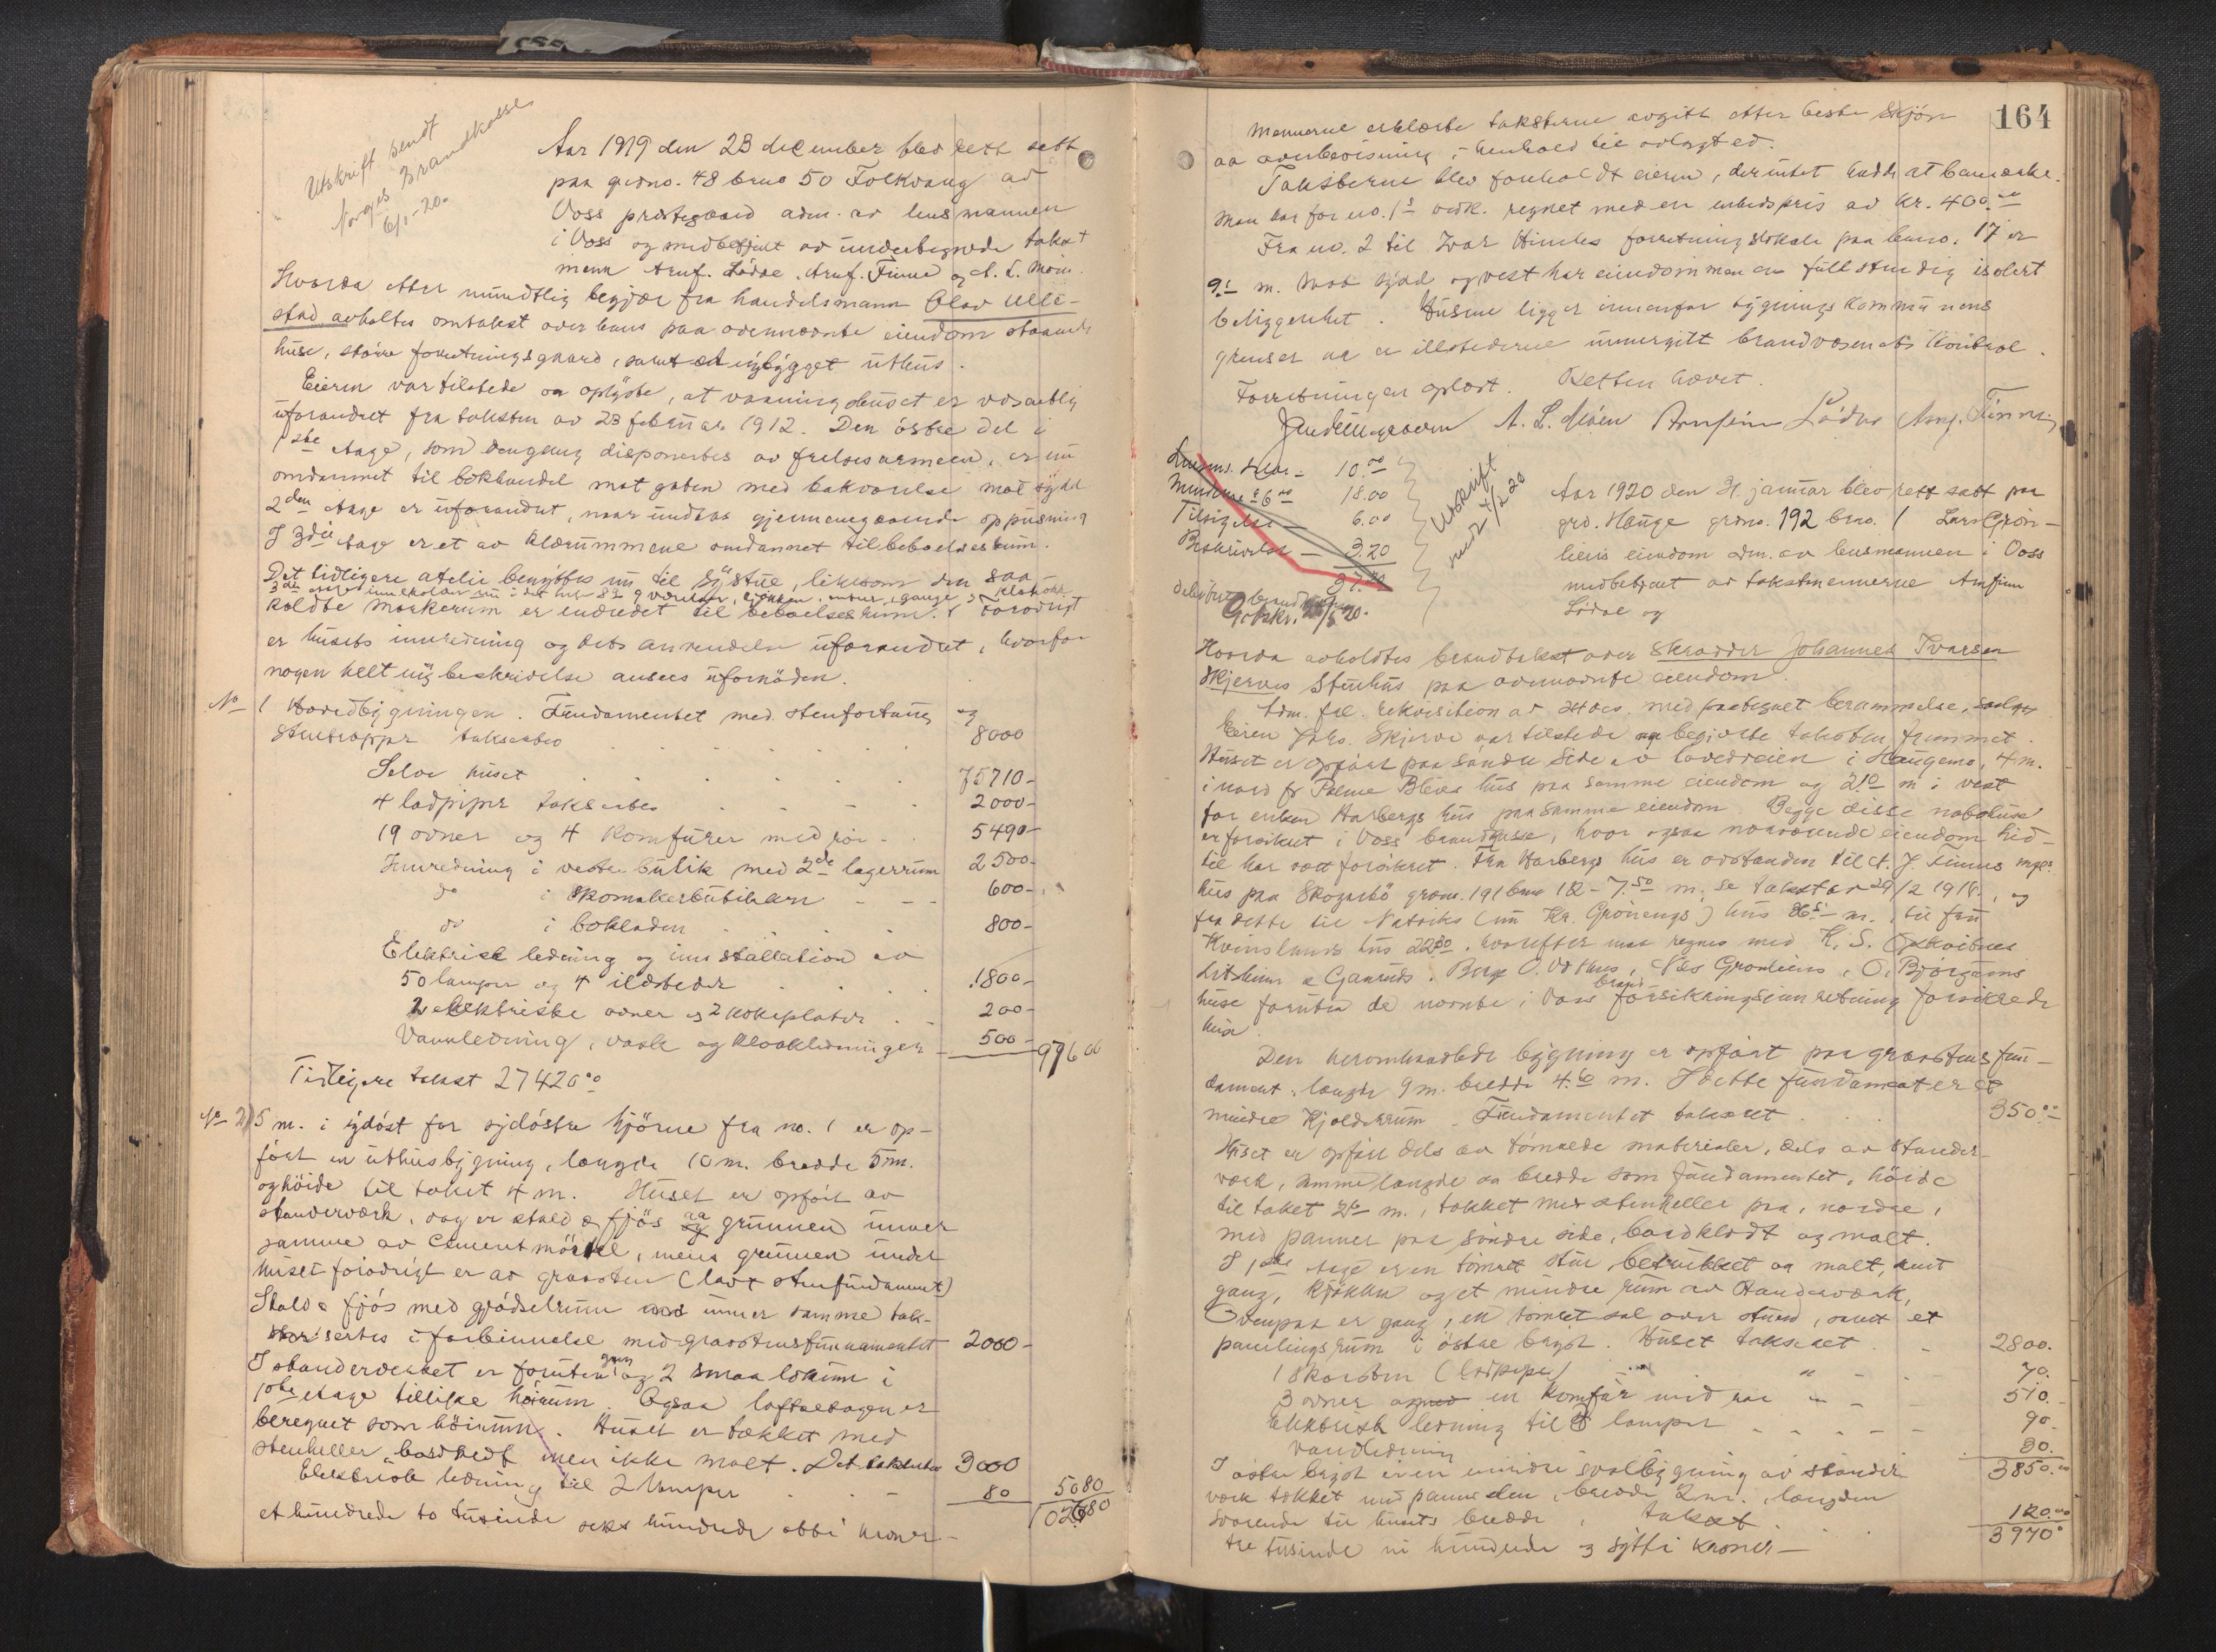 Utskrift sendt
Norges Brandkasse
6/1-20.
Aar 1919 den 23 december blev rett satt
paa gardno. 48 bruno 50 Folkvang av
Voss prestegaard adm. av lensmannen
i Voss og medbetjent av undertegnede takst
menn Arnf. Lödve, Arnf. Finne og A. L. Möen.
Hvorda etter mundtlig begjær fra handelsmann Olav Ulle-
stad avholdtes omtakst over hans paa ovennævnte eiendom staaende
huse, större forretningsgaard, samt et nybygget uthus.
Eieren var tilstede og oplyste, at vaaningshuset er væsentlig
uforandret fra taksten av 23 februar 1912. Den östre del i
1ste etage, som dengang disponertes av frelsesarmeen, er nu
omdannet til bokhandel mot gaten med bakværelse mot syd
2den etage er uforandret, naar undtas gjennemgaaende oppusning
I 3die etage er et av klærummene omdannet til beboelsesrum.
Det tidligere atelie benyttes nu til systue, likesom den saa-
3die etage inneholder nu i det hele 9 værelser, kjökken, entre, gange og klækott
kaldte mörkerum er endret til beboelsesrum. Forövrigt
er husets innredning og dets anvendelse uforandret, hvorfor
nogen helt ny beskrivelse ansees ufornöden.
No 1 Hovedbygningen. Fundamentet med stenfortaug og
stentrapper takseres 8000
Selve huset 75710-
4 ladpiper takseres 2000-
19 ovner og 4 komfurer med rör 5490-
Innredning i vestre butik med 2de lagerrum 2500-
do i skomakerbutikken 600-
do i bokladen 800-
Elektrisk ledning og innstallation av
50 lamper og 4 ildsteder 1800-
2 elektriske ovner og 2 kokeplater 200-
Vannledning, vask og kloakledninger 500- 97600
Tidligere takst 27420.00
No 2) 5 m. i sydöst for sydöstre hjörne fra no. 1 er op-
fört en uthusbygning, længde 10 m. bredde 5 m.
og höide til taket 4 m. Huset er opfört av
standerværk, dog er stald & fjös og grunnen unner
samme av cementmörtel, mens grunnen under
huset forövrigt er av graasten (lavt stenfundament)
Stald & fjös med gjödselrum unner samme tak-
sertes i forbinnelse med graastensfunnamentet 2000-
I standerverket er foruten gang og 2 smaa lokum i
1ste etage tillike höirum. Ogsaa loftsetagen er
beregnet som höirum. Huset er tækket med
stenheller, bordkledt men ikke malt. Det takseres 3000
Elektrisk ledning til 2 lamper 80 5080
102680
et hundrede to tusinde seks hundrede otti kroner-
164
Mennerne erklærte taksterne avgitt etter beste skjön
og overbevisning i henhold til avlagt ed.
Taksterne blev foreholdt eieren, der intet hadde at bemærke.
Man har for no. 1s vedk. regnet med en enhedspris av kr. 400.00
Fra no. 2 til Ivar Himles forretningslokale paa bruno. 17 er
9.5 m. Mot syd og vest har eiendommen en fullstendig isolert
beliggenhet. Husene ligger innenfor bygningskommunens
grenser og er illstederne unnergitt brandvæsenets kontrol.
Forretningen oplæst. Retten hævet.
A. L. Möen Arnfinn Lödve Arnf. Finne
Lensm. Salær - 10.00
Mennene à 6.00 18.00
Tilsigelse - 6.00
Beskrivelse - 3.20
37.20
Utskrift
send 4/2 20
Aar 1920 den 31. januar blev rett satt paa
grd. Hauge grdno. 192 brno. 1 Lars Grön-
liens eiendom adm. av lensmannen i Voss
medbetjent av takstmennerne Arnfinn
Lödve og
Hvorda avholdtes brandtakst over skrædder Johannes Ivarsen
Skjerves Stenhus paa ovennævnte eiendom.
Adm. frl. rekvisition av 24 des. med paategnet berammelse.
Eieren Johs. Skjerve var tilstede og begjærte taksten fremmet.
Huset er opfört paa söndre side av hovedveien i Haugamo, 4 m.
i nord for Palme Bleies hus paa samme eiendom og 2.10 m i vest
for enken Harbergs hus paa samme eiendom. Begge disse nabohuse
er forsikret i Voss brandkasse, hvor ogsaa nærværende eiendom hid-
til har vært forsikret. Fra Harbergs hus er avstanden til A. J. Finnes
hus paa Skogarbö grdno. 191 bruno 12 - 7.50 m. se takst av 29/2 1918, og
fra dette til Natviks (nu Kr. Grönengs) hus 8.65 m. til fru
Kvinslands hus 22.30. hvorefter maa regnes med K. S. Opskvitnes
huse foruten de nævnte i Voss brandforsikringsinnretning forsikrede
huse.
Den heromhandlede bygning er opfört paa graastensfun-
dament, længde 9 m. bredde 4.60 m. I dette fundament er et
mindre kjælderrum. Fundamentet taksert 350.00
Huset er opfört dels av tömrede materialer, dels av stander-
værk, samme længde og bredde som fundamentet, höide
til taket m., tækket med stenheller paa nordre,
med panner paa söndre side, bordklædt og malt.
I 1ste etage er en tömret stue, betrukket og malt, samt
gang, kjökken og et mindre rum av standerværk,
Ovenpaa er gang, en tömret sal over stuen, samt et
panelingsrum i östre bygst. Huset taksert 2800.
1 skorsten (ladpipe) 70.
3 ovner og en komfur med rör 510.
Elektrisk ledning til lamper 90
Vandledning 30.
3850.00
I östre bygst er en mindre svalbygning av stander
værk tækket med panner, bredde 2 m., længden
svarende til husets bredde, takst 120.00
3970.
tre tusinde ni hundrede og sytti kroner-